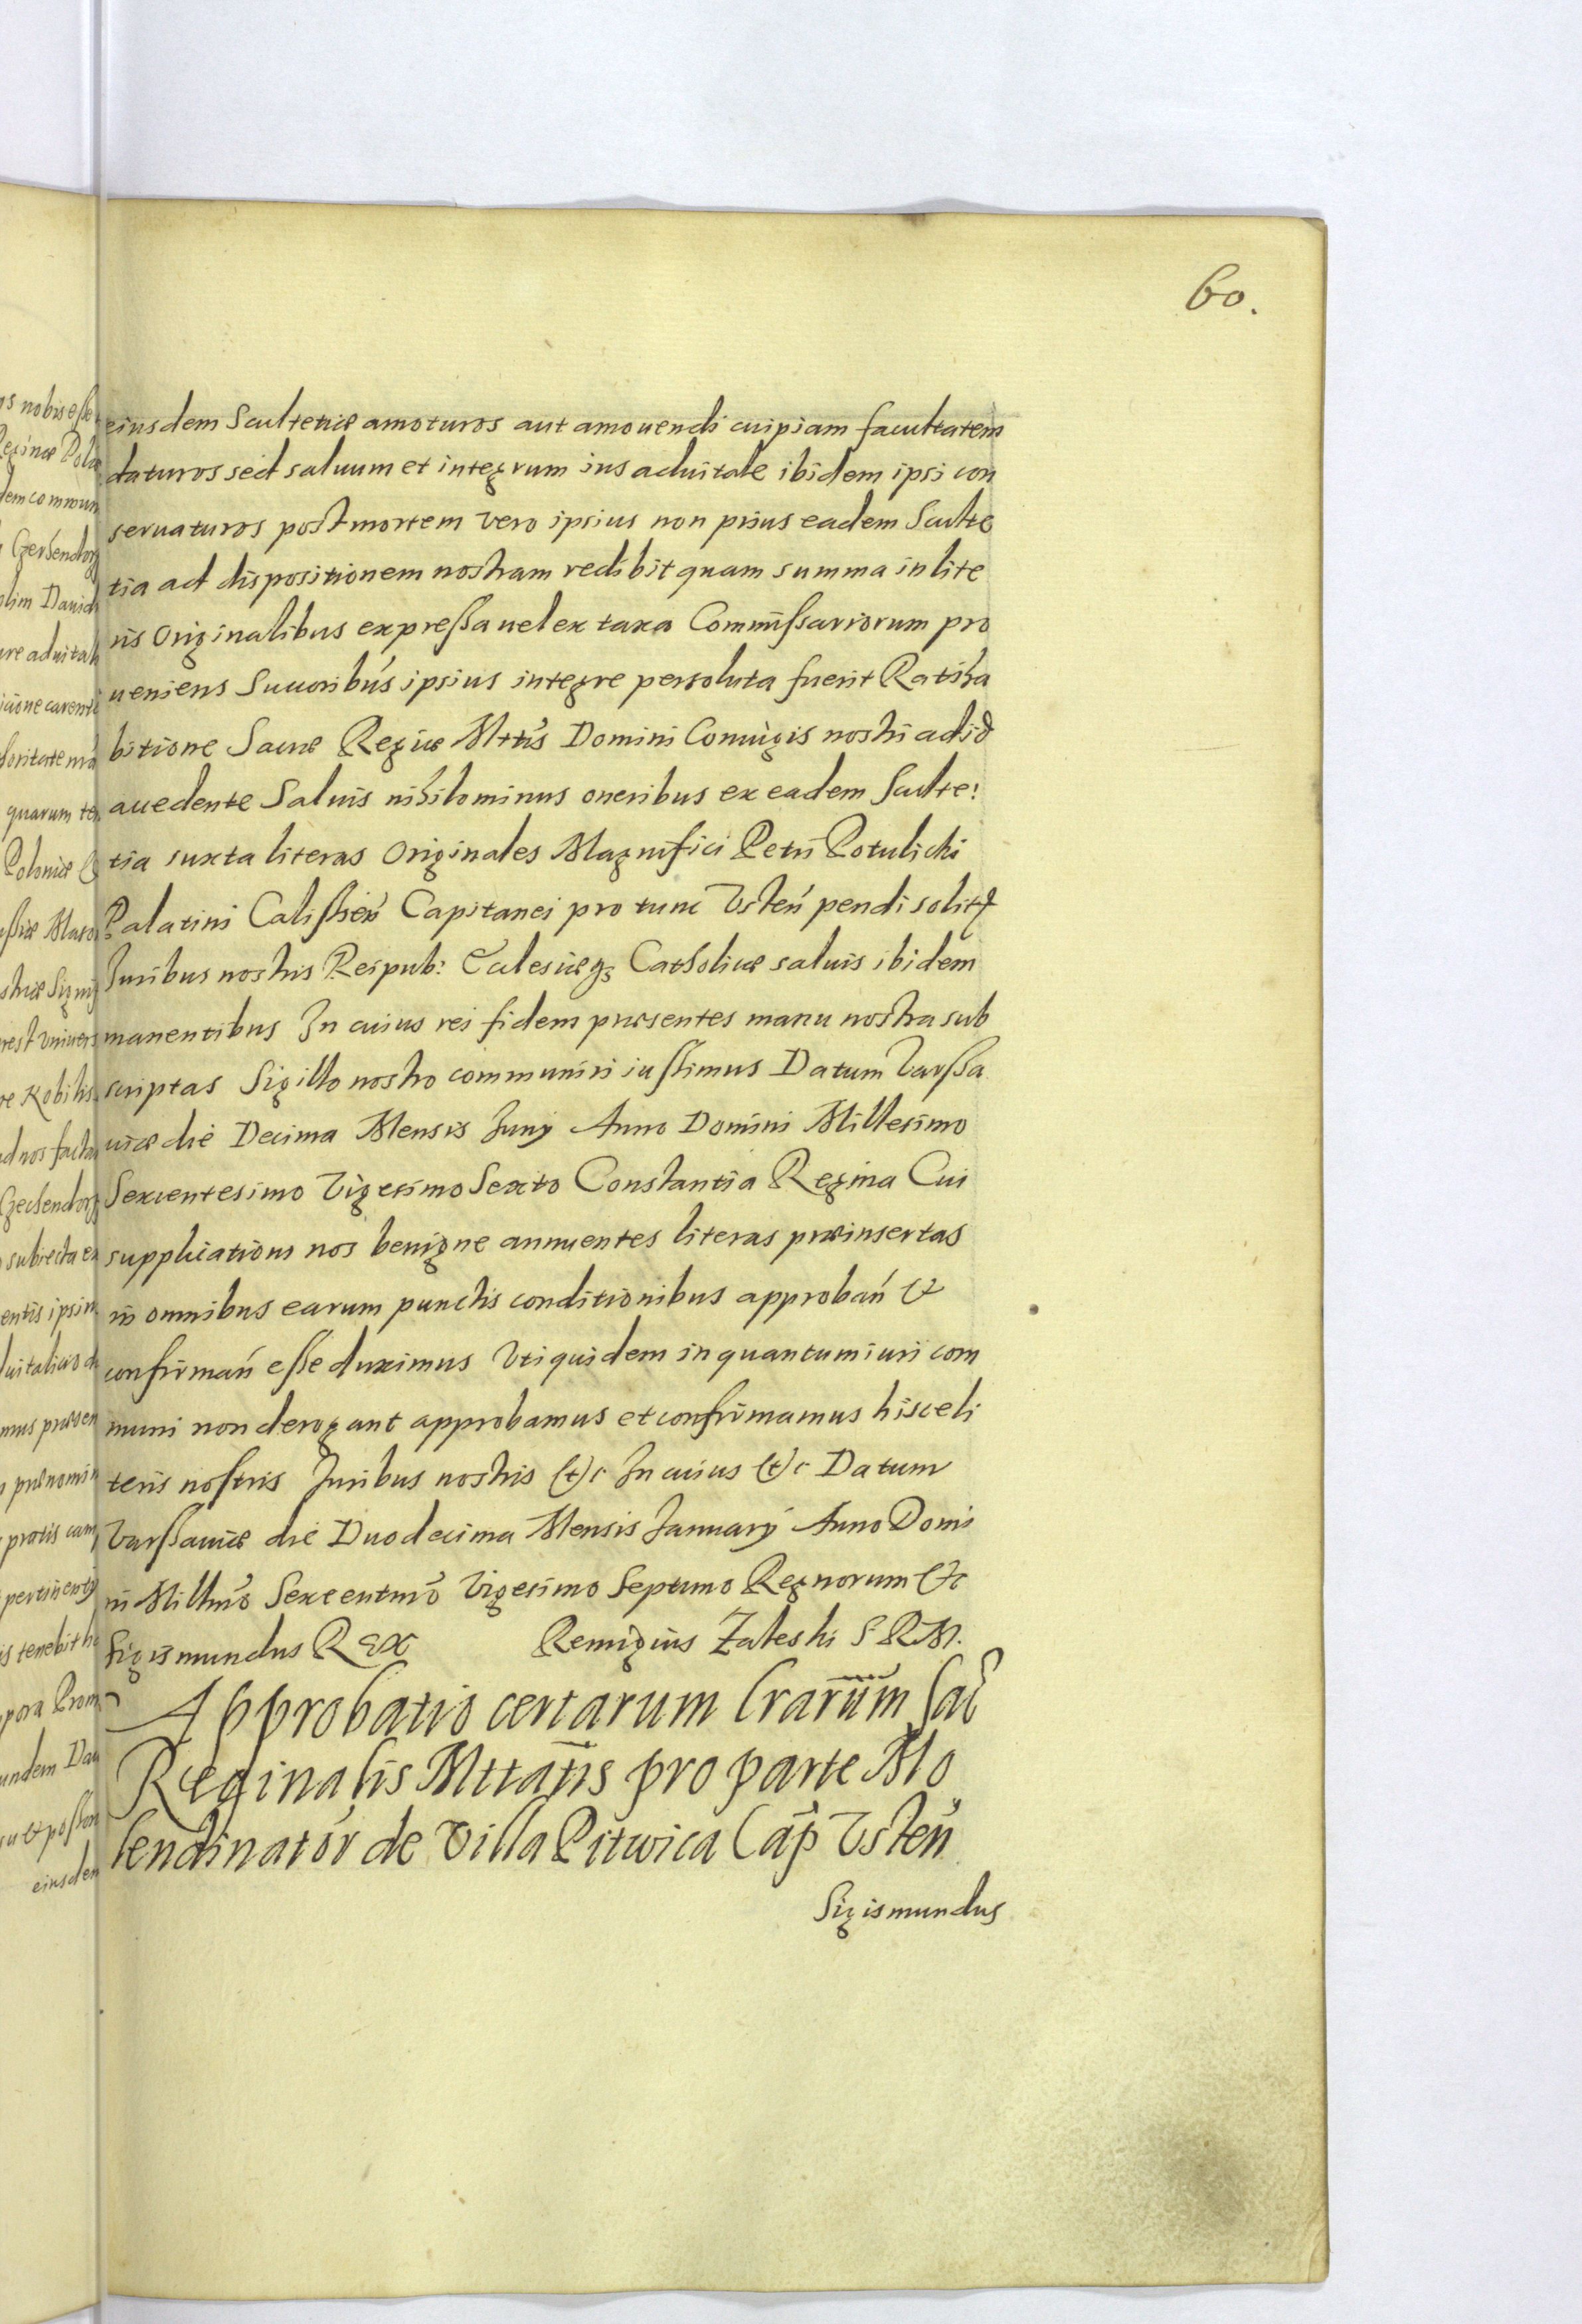 60.
eiusdem Scultetiæ amoturos aut amouendi cuipiam facultatem
daturos sed saluum et integrum ius aduitale ibidem ipsi con
seruaturos post mortem vero ipsius non prius eadem Sculte
tia ad dispositionem nostram redibit quam summa in lite
ris Originalibus expressa uel ex taxa Commissariorum pro
ueniens Succoribus ipsius integre persoluta fuerit Ratiha
bitione Sacræ Regiæ Mttis Domini Coniugis nostri ad id
accedente Saluis nihilominus oneribus ex eadem Sculte:
tia iuxta literas Originales Magnifici Petri Potulicki
Palatini Calissień Capitanei pro tunc Vsteń pendi solitis
Iuribus nostris Reipub: Ecclesiæq3 Catholicæ saluis ibidem
manentibus In cuius rei fidem præsentes manu nostra sub
scriptas Sigillo nostro communiri iussimus Datum Varssa
uiæ die Decima Mensis Junÿ Anno Domini Millesimo
Sexcentesimo Vigesimo Sexto Constantia Regina Cui
supplicationi nos benigne annuentes literas præinsertas
in omnibus earum punctis conditionibus approbań &
confirmań esse duximus Vti quidem in quantum iuri com
muni non derogant approbamus et confirmamus hisce li
teris nostris Iuribus nostris (et)c In cuius (et)c Datum
Varssauiæ die Duodecima Mensis Januarÿ Anno Domi
ni Millmō Sexcentmō Vigesimo Septimo Regnorum &c
Sigismundus REX Remigius Zaleski S R M.
Approbatio certarum Lrarum Sac
Ræginalis Mttatis pro parte Mo
lendinator de Villa Pitwica Cap Vsteń
Sigismundus